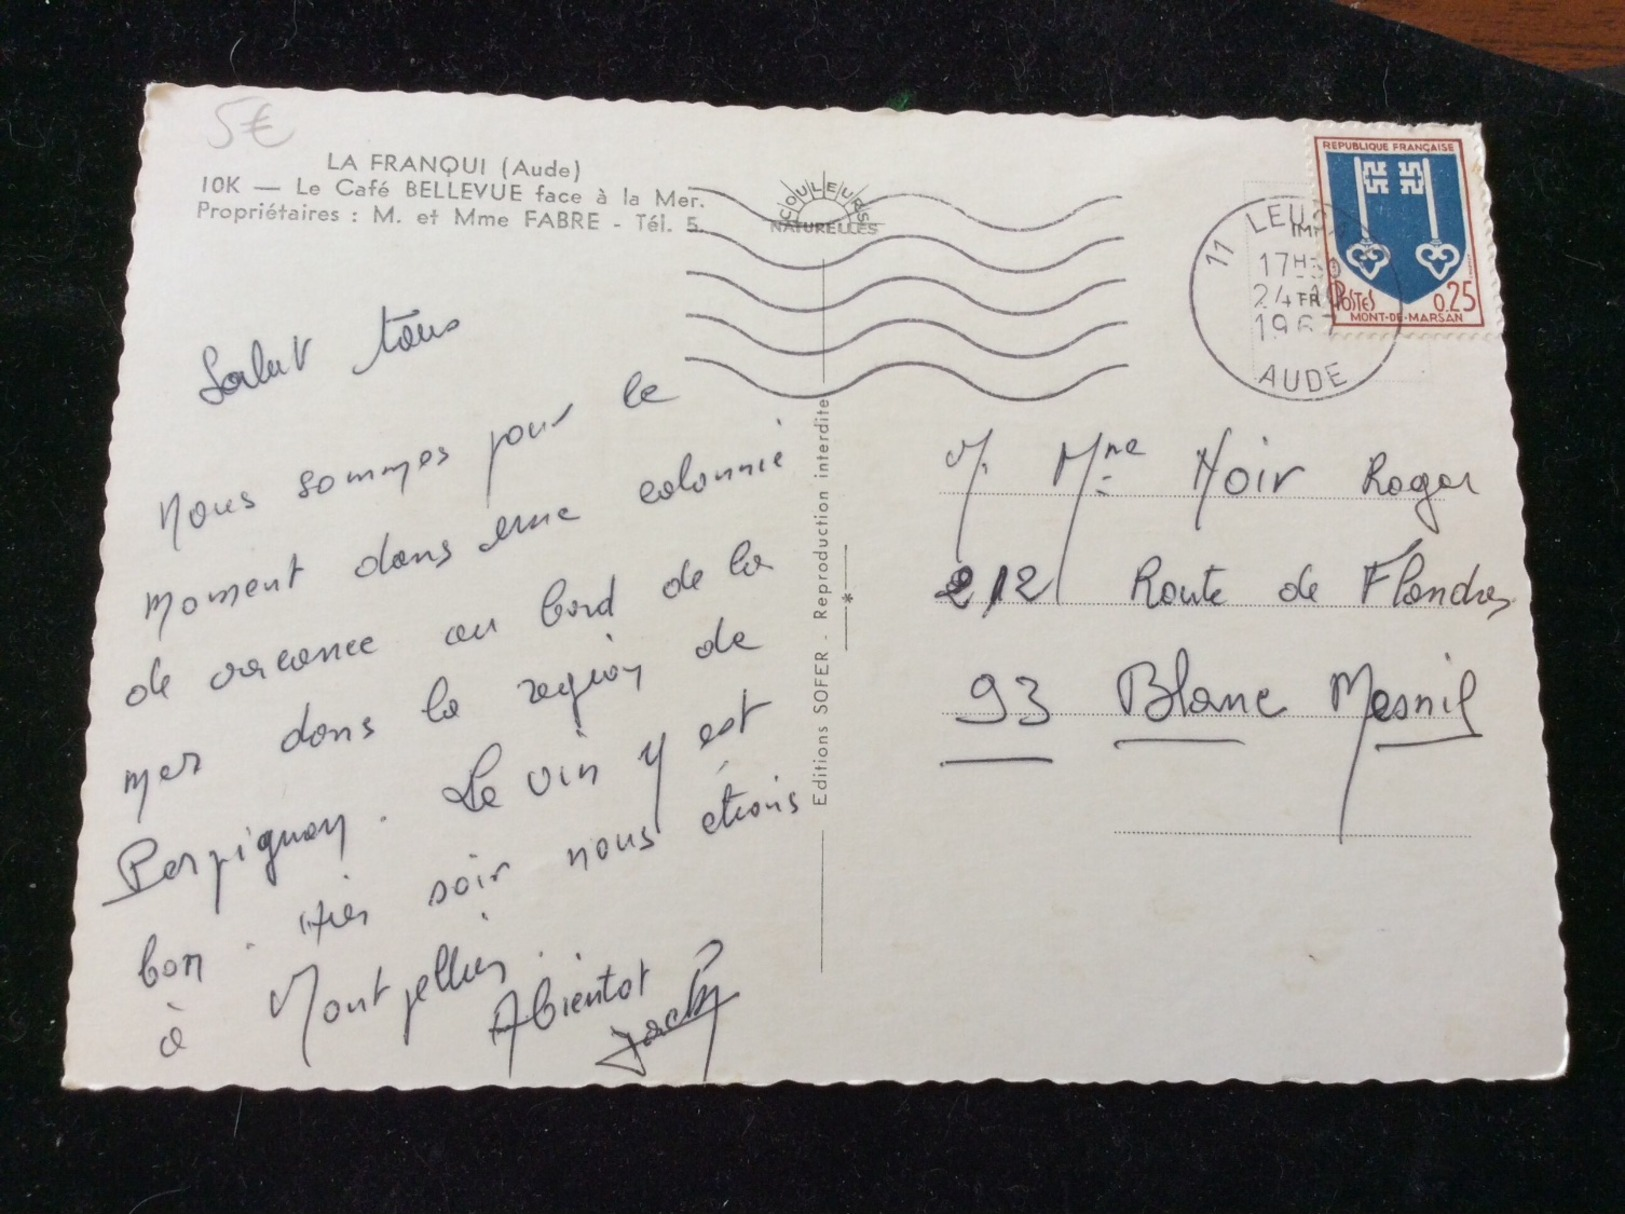 5€
LA FRANQUI (Aude)
10K — Le Café BELLEVUE face à la Mer.
Propriétaires : M. et Mme FABRE - Tél. 5.
COULEURS
NATURELLES
Salut tous
Nous sommes pour le
moment dans une colonnie
de vacance au bord de la
mer dans la region de
Perpignan. Le vin y est
bon. Hier soir nous étions
à Montpellier.
Abientot
Jacky
Editions SOFER - Reproduction interdite
REPUBLIQUE FRANÇAISE
POSTES 0,25
MONT-DE-MARSAN
11
17H
24
1967
AUDE
M. Mme Noir Roger
212 Route de Flandres
93 Blanc Mesnil